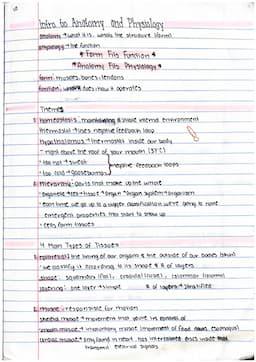 Intro to Anatomy and Physiology
anatomy → what it is, whats the structure (form)
physiology → the function
* Form Fits Function *
* Anatomy Fits Physiology *
form: muscles, bones, tendons
function: does how it operates
Themes
1. Homeostasis: maintaining a stable internal environment
thermostat → uses negative feedback loop
hypothalamus → thermostat inside our body
• right above the roof of your mouth (37°C)
• too hot → sweat
negative feedback loops
• too cold → goosebumps
2. Hierarchy: parts that make up the whole
• organelle → cell → tissue → organ → organ system → organism
• each time we go up to a bigger classification we're going to have
emergent properties that start to show up
• cells form tissues
4 Main Types of Tissues
1. epithelial: the lining of our organs & the outside of our bodies (skin)
• we classify it according to its shape & # of layers
shape: squamous (flat), cuboidal (cube), columnar (column)
layering: one layer → simple # of layers → stratified
2. muscle: responsible for motion
skeletal muscle → movement that you're in control of
smooth muscle → involuntary muscle (movement of food down esophagus)
cardiac muscle → only found in heart, has intercalated discs inside that
transmit electrical signals